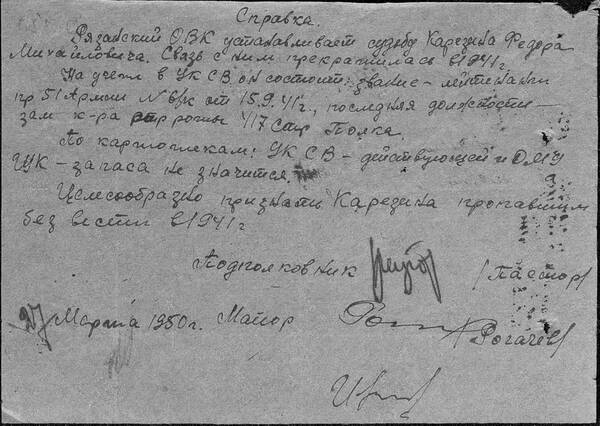 Справка.
Рязанский ОВК устанавливает судьбу Карезина Федора
Михайловича. Связь с ним прекратилась в 1941 г.
На учете в УК СВ он состоит; звание – лейтенант
пр 51 Армии № в/к от 15.9.41 г., последняя должность –
зам к-ра стр роты 417 Стр Полка.
По картотекам: УК СВ – действующей и ОМУ
ЦК – запаса не значится.
Целесообразно признать Карезина пропавшим
без вести в 1941 г
Подполковник /Пастор/
27 Марта 1950 г. Майор /Рогачев/